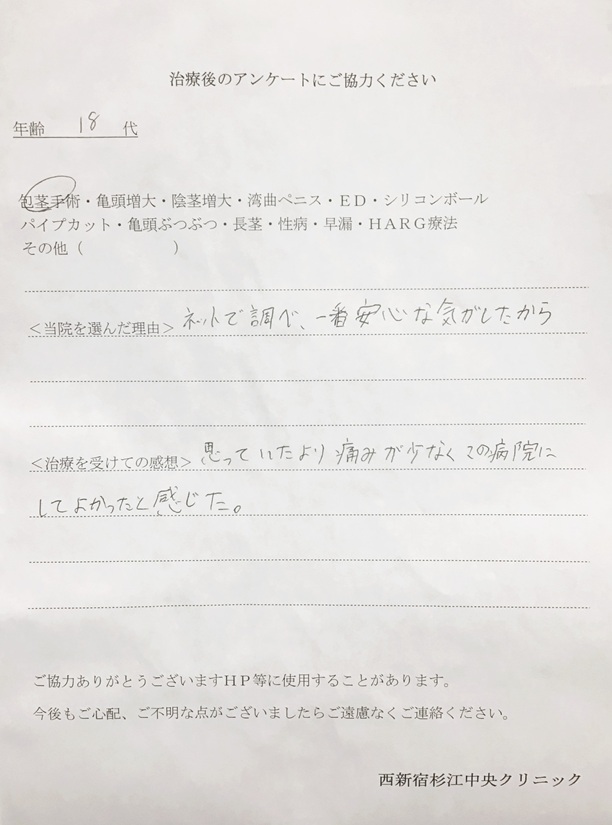 治療後のアンケートにご協力ください
年齢 18 代
包茎手術・亀頭増大・陰茎増大・湾曲ペニス・ED・シリコンボール
パイプカット・亀頭ぶつぶつ・長茎・性病・早漏・HARG療法
その他（ ）
＜当院を選んだ理由＞ ネットで調べ、一番安心な気がしたから
＜治療を受けての感想＞ 思っていたより痛みが少なくこの病院に
してよかったと感じた。
ご協力ありがとうございますHP等に使用することがあります。
今後もご心配、ご不明な点がございましたらご遠慮なくご連絡ください。
西新宿杉江中央クリニック